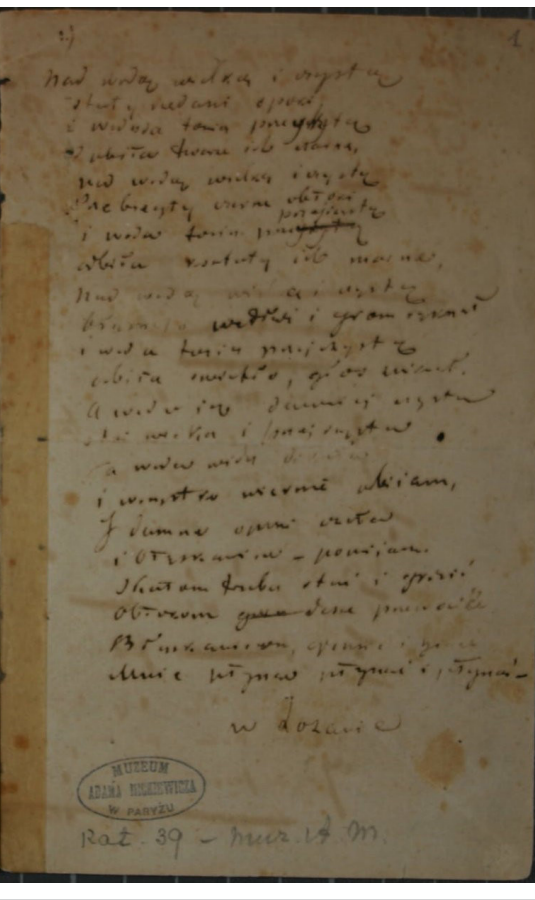 2)
1
Nad wodą wielką i czystą
Stały rzędami opoki
i woda tonią przejrzystą
Odbiła twarze ich czarne,
nad wodą wielką i czystą
Przebiegły czarne obłoki
przejrzystą
i woda tonią
odbiła kształty ich marne,
Nad wodą wielką i czystą
błysnęło wzdłuż i grom ryknął
i woda tonią przejrzystą
odbiła światło, głos zniknął.
A woda jak dawniej czysta
stoi wielka i przejrzysta
Tę wodę widzę dokoła
i wszystko wiernie odbijam,
I dumne opoki czoła
i błyskawice – pomijam.
Skałom trzeba stać i grozić
Obłokom deszcze przewozić
Błyskawicom, grzmieć i ginąć
Mnie płynąć płynąć i płynąć –
w Lozanie
MUZEUM
ADAMA MICKIEWICZA
W PARYŻU
Kat. 39 – Muz. A. M.